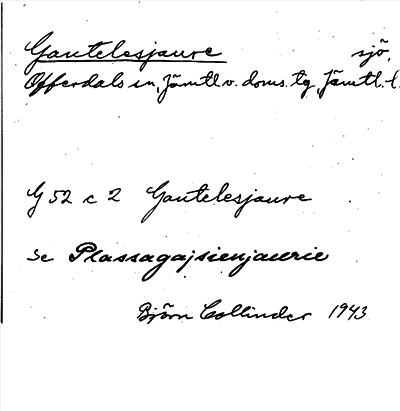 Gautelesjaure sjö,
Offerdals sn, Jämtl. v. doms. tg, Jämtl. l.
G 52 c 2 Gautelesjaure
se Plassagajsienjaurie
Björn Collinder 1943